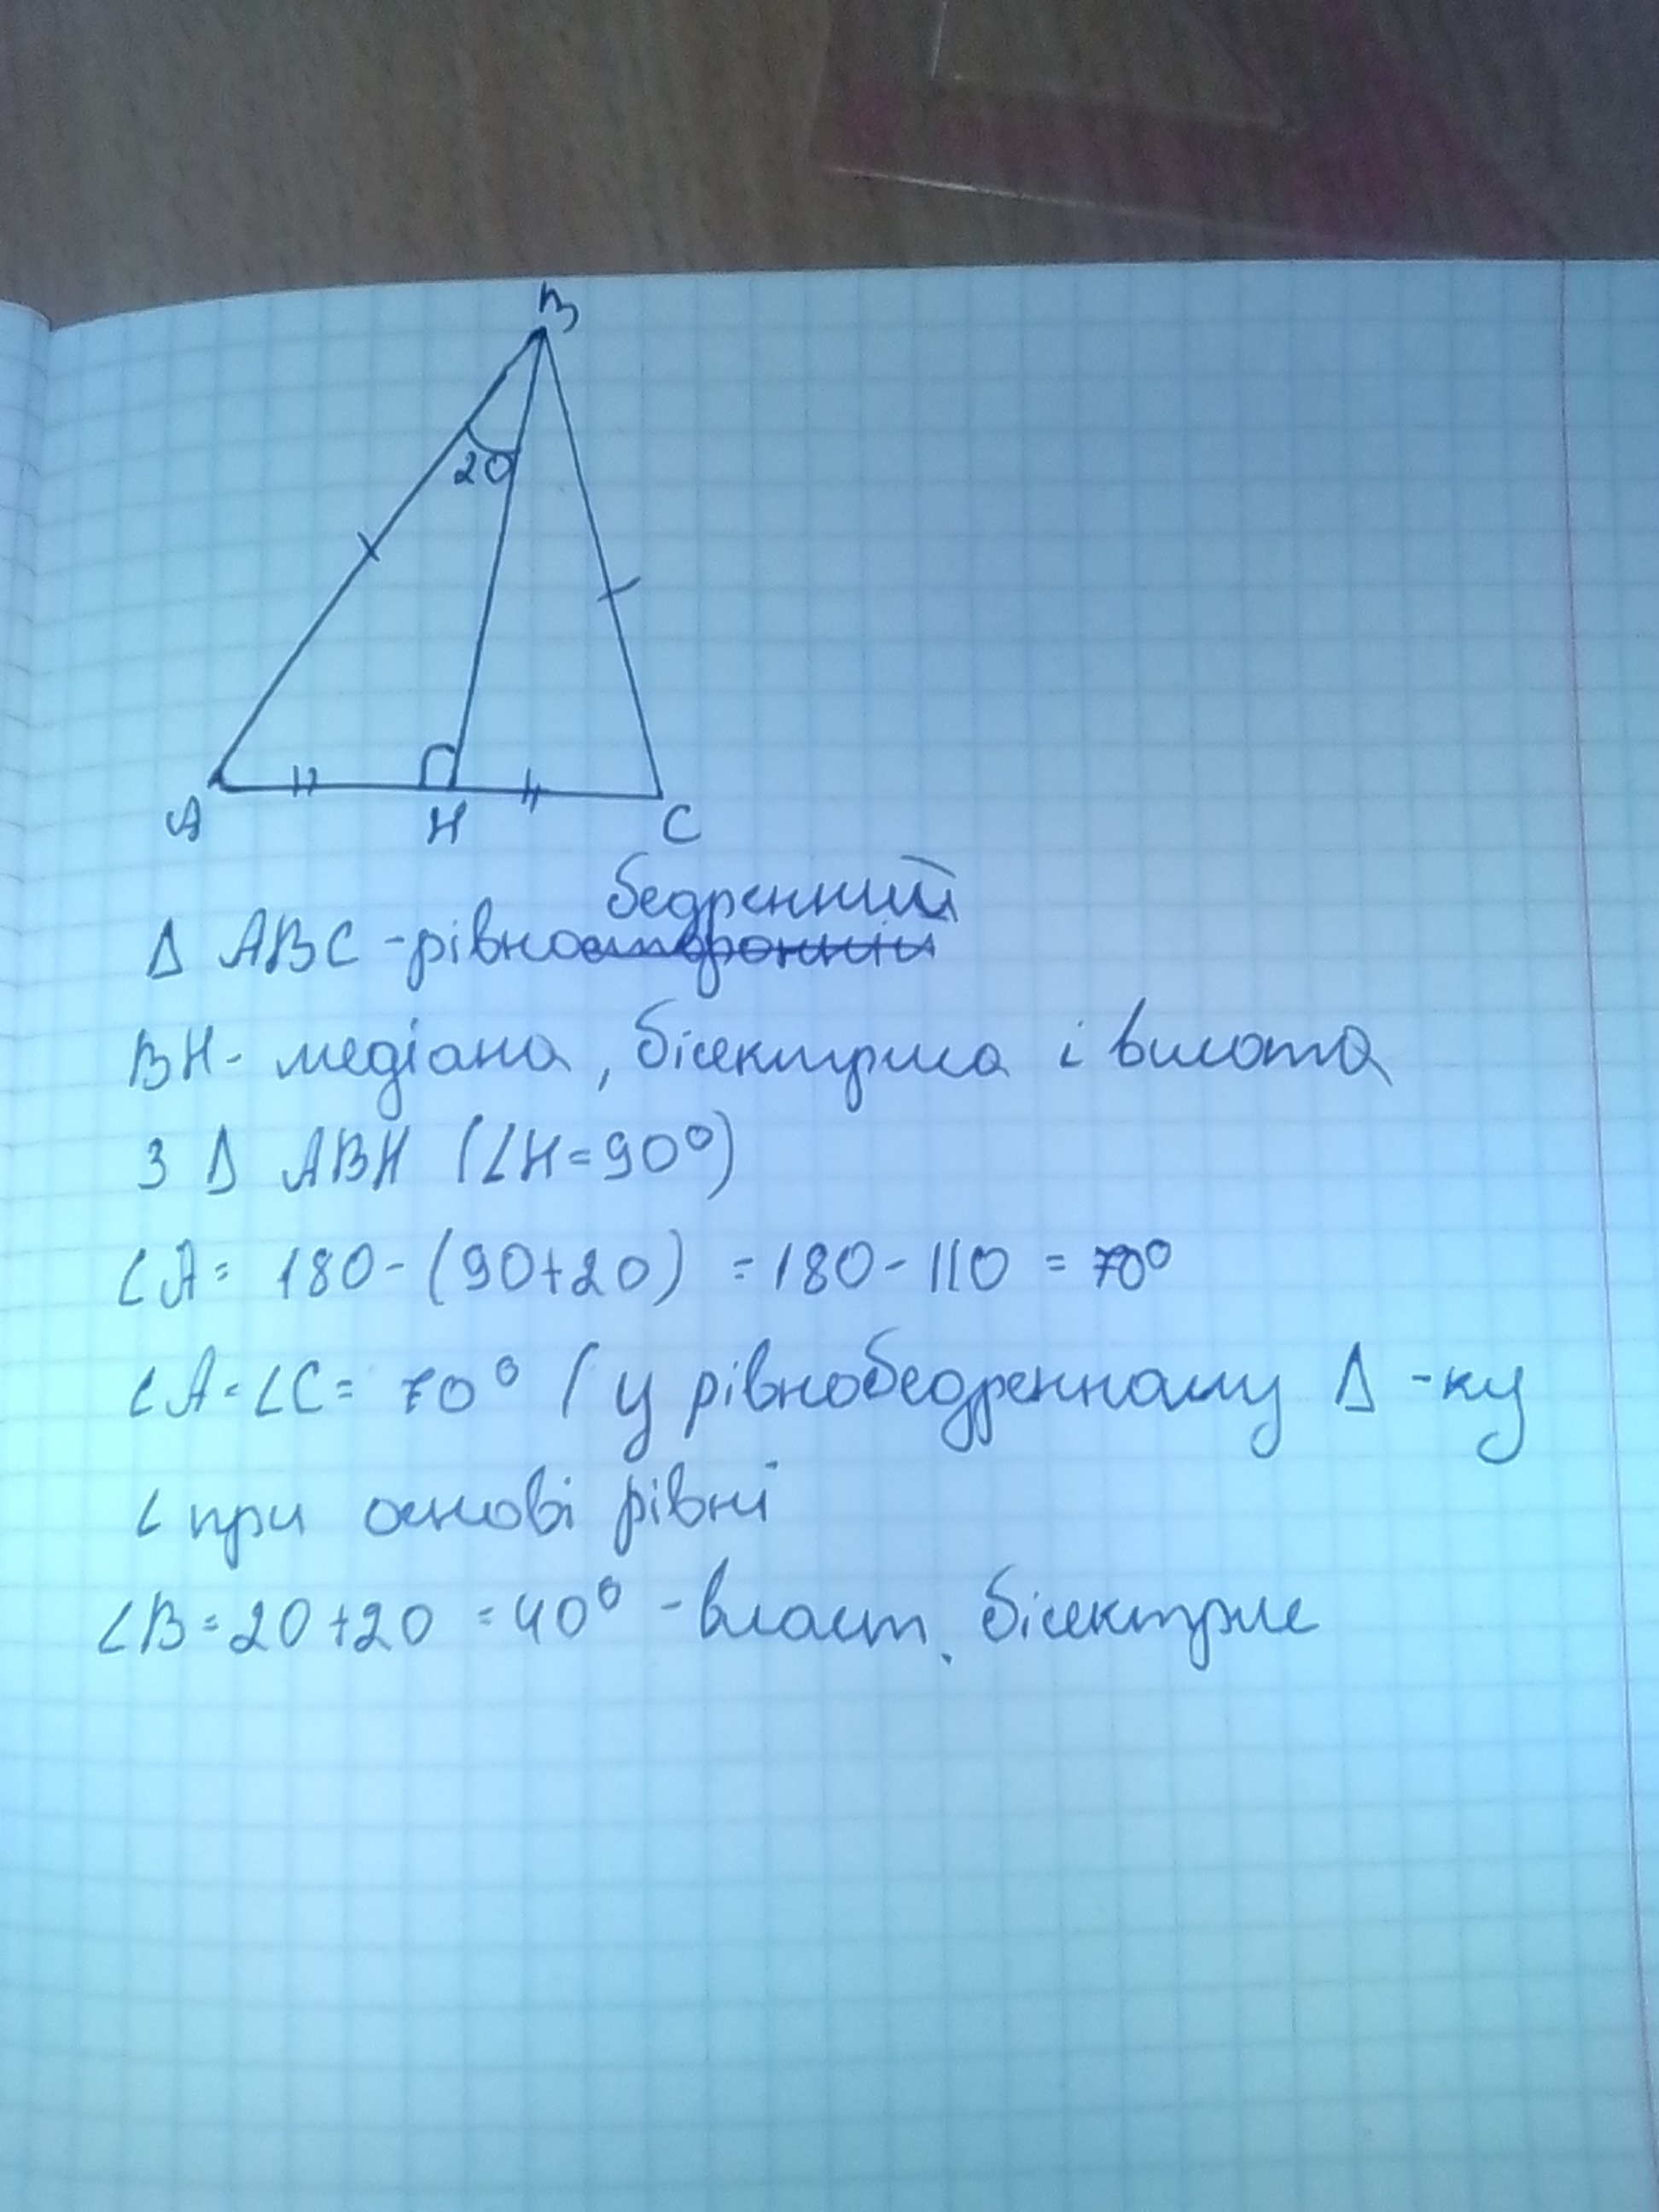 B
20
A H C
Δ ABC - рівнобедренний
BH - медіана, бісектриса і висота
З Δ ABH (∠H=90°)
∠A= 180-(90+20) =180-110 = 70°
∠A=∠C= 70° ( у рівнобедренному Δ -ку
∠ при основі рівні
∠B=20+20 =40° - власт. бісектрис